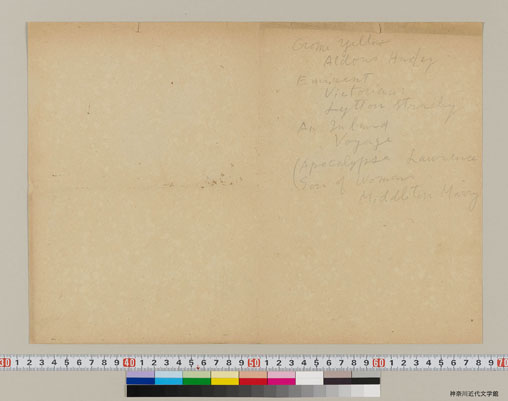 Crome Yellow
Aldous Huxley
Eminent
Victorians
Lytton Strachey
An Inland
Voyage
(Apocalypse Lawrence
(Son of Woman
Middleton Murry
30 1 2 3 4 5 6 7 8 9 40 1 2 3 4 5 6 7 8 9 50 1 2 3 4 5 6 7 8 9 60 1 2 3 4 5 6 7 8 9 70
神奈川近代文学館